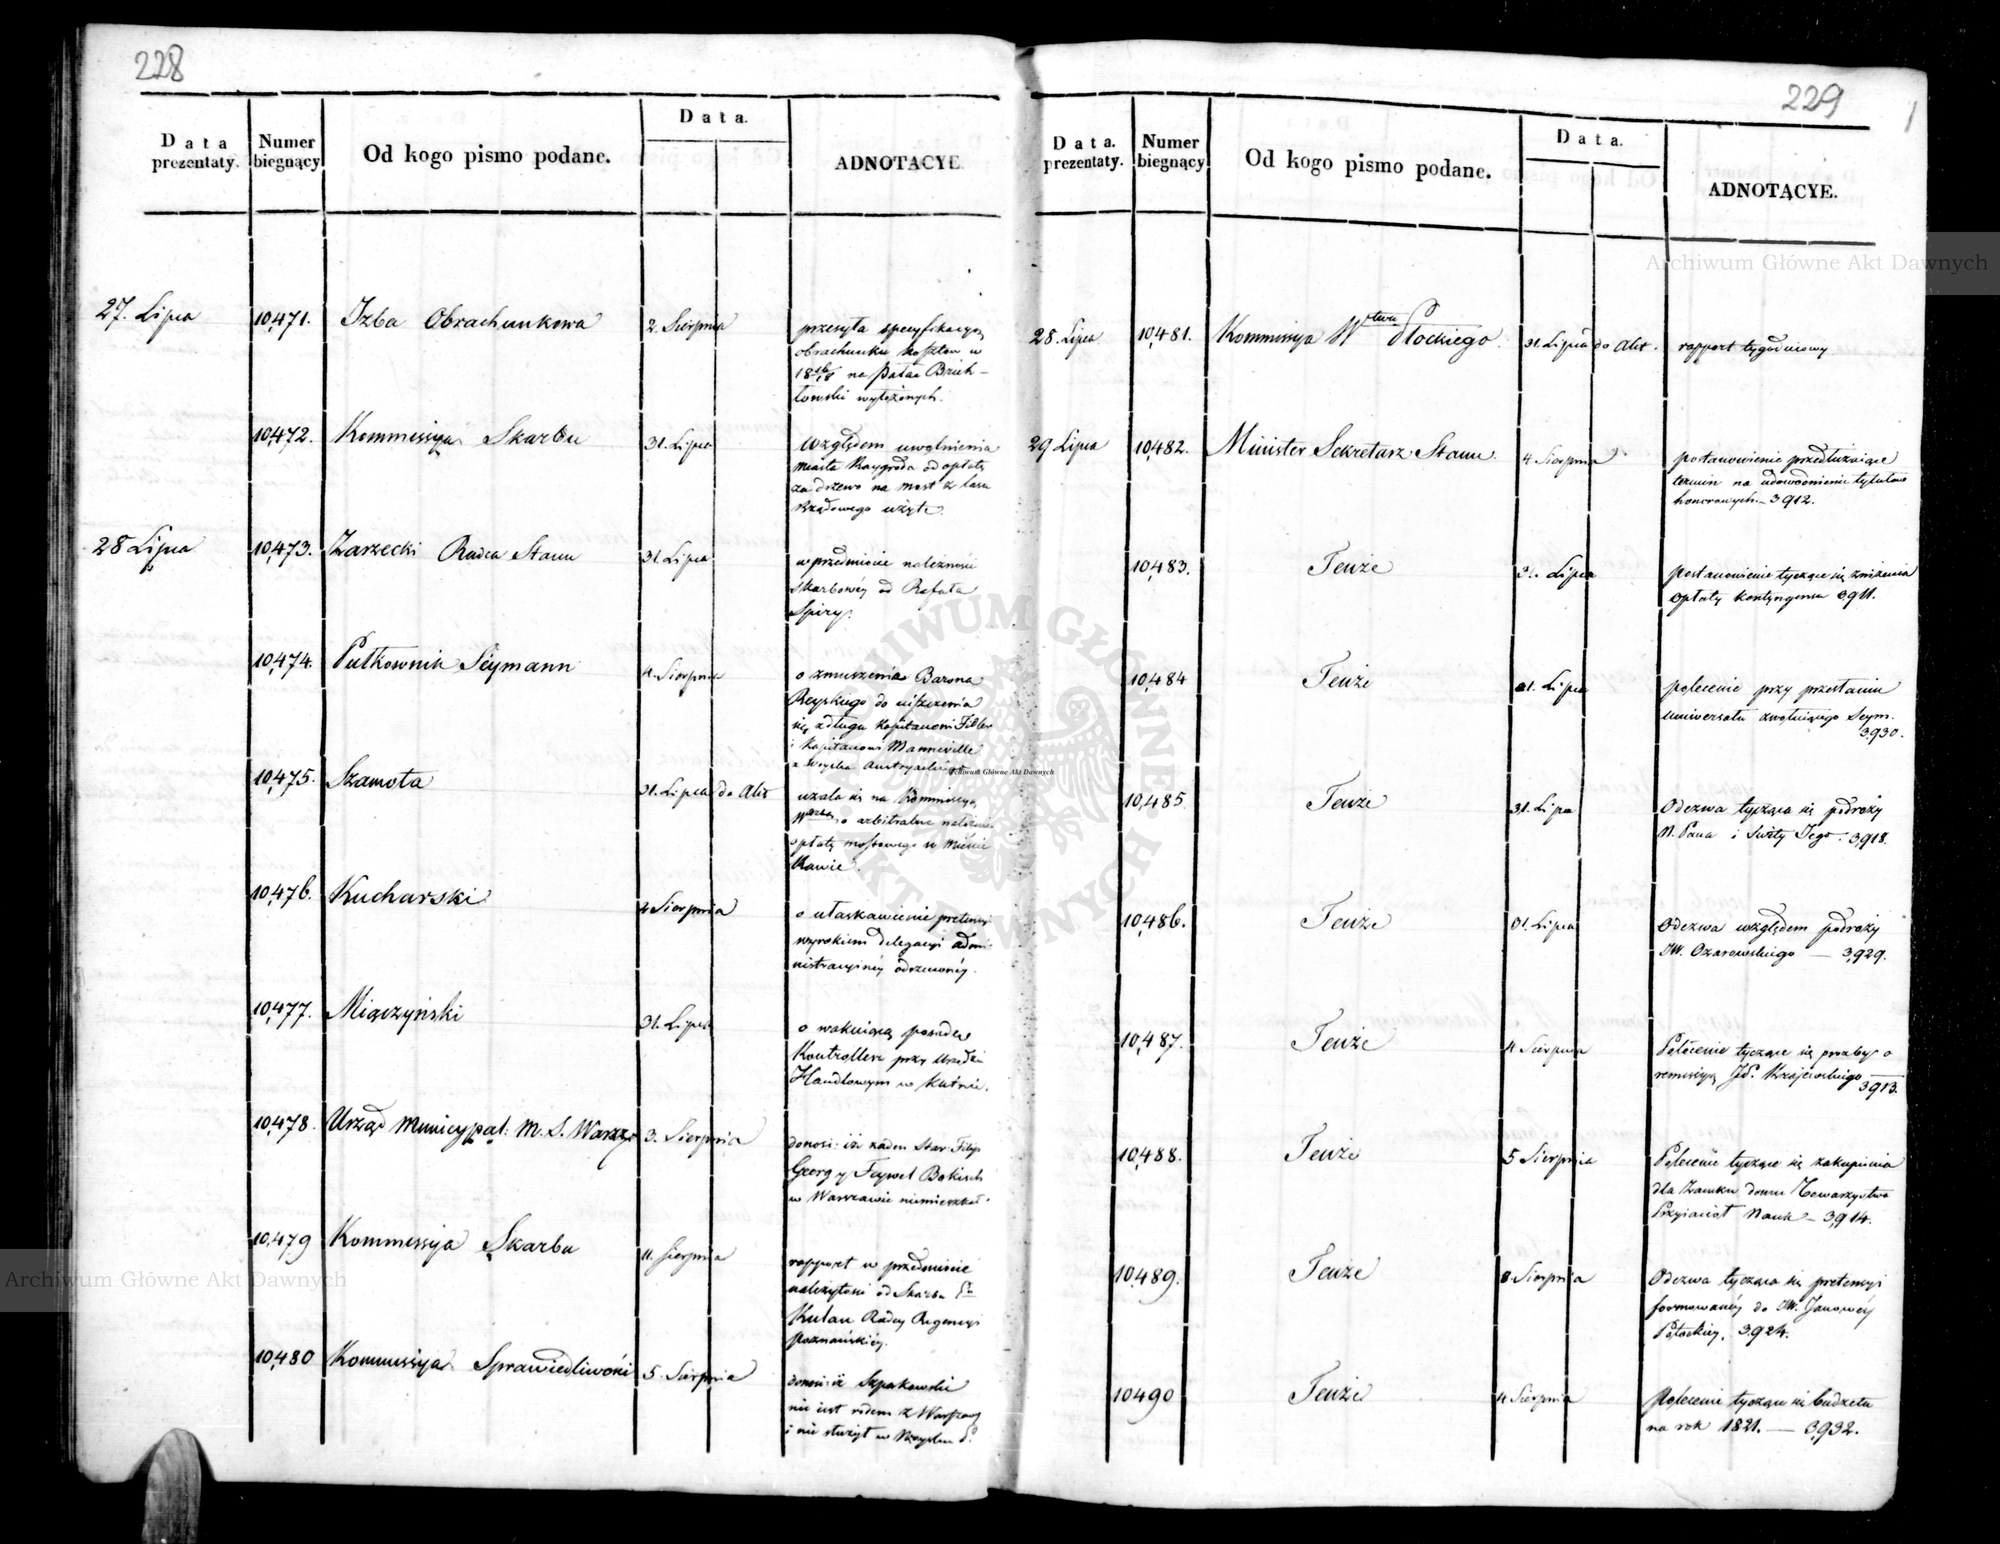 228
Data prezentaty.
Numer biegnący
Od kogo pismo podane.
Data.
ADNOTACYE.
27. Lipca
10,471.
Izba Obrachunkowa
2. Sierpnia
przesyła specyfikacyą
obrachunku kosztow w
18 16/18 na Pałac Brüh-
lowski wyłożonych.
10,472.
Kommissya Skarbu
31. Lipca
względem uwolnienia
miasta Raygroda od opłaty
za drzewo na most z lasu
Rządowego użyte.
28 Lipca
10,473.
Zarzecki Radca Stanu
31. Lipca
w przedmiocie należności
Skarbowéy od Rafała
Spiry.
10,474.
Pułkownik Seymann
4. Sierpnia
o zmuszenie Barona
Reyskiego do uiszczenia
się z długu Kapitanowi
i Kapitanowi Manneville
z Woyska Austryackiego
10,475.
Szamota
31. Lipca do Akt
użala się na Kommissyą
o arbitralne
opłaty mostowego w
10,476.
Kucharski
2 Sierpnia
o ułaskawienie pretensyi
wyrokiem delegacyi admi-
nistracyinéy odrzuconéy.
10,477.
Miączyński
31. Lipca
o wakuiącą posadę
Kontrollera przy Urzędzie
Handlowym w Kutnie.
10,478.
Urząd Municypal: M. S. Warszy
3. Sierpnia
donosi: iż żaden Star: Filip
Georg y Faywel Bokisch
w Warszawie niemieszkał.
10,479
Kommissya Skarbu
11. Sierpnia
rapport w przedmiocie
należytości od Skarbu
Kulau Radcy Regencyi
poznańskiéy.
10,480
Kommissya Sprawiedliwości
5. Sierpnia
donosi: iż Szpakowski
nie iest rodem z Warszawy
i nie służył w Woysku P.
229
Data. prezentaty.
Numer biegnący
Od kogo pismo podane.
Data.
ADNOTACYE.
28. Lipca
10,481.
Kommissya Wtwa Płockiego.
31. Lipca do Akt.
rapport tygodniowy
29 Lipca
10,482.
Minister Sekretarz Stanu.
4 Sierpnia
postanowienie przedłużaiące
termin na udowodnienie tytułow
honorowych. – 3912.
10,483.
Tenże
31. Lipca
postanowienie tyczące się zniżenia
opłaty kontyngensu 3,911.
10,484
Tenże
31. Lipca
polecenie przy przesłaniu
uniwersału zwołuiącego Seym.
3,930.
10,485
Tenże
31. Lipca
Odezwa tycząca się podroży
N. Pana i Swity Jego. 3,918.
10,486.
Tenże
31. Lipca
Odezwa względem podroży
JW. Ożarowskiego — 3,929.
10,487.
Tenże
4 Sierpnia
Polecenie tyczące się prozby o
remissyą JP. Krajewskiego
3913.
10,488.
Tenże
5 Sierpnia
Polecenie tyczące się zakupienia
dla Zamku domu Towarzystwa
Przyiacioł Nauk – 3,914.
10,489.
Tenże
8. Sierpnia
Odezwa tycząca się pretensyi
formowanéy do JW. Janowéy
Potockiey. 3,924.
10490
Tenże
4 Sierpnia
Polecenie tyczące się budżetu
na rok 1821. — 3,932.
Archiwum Główne Akt Dawnych
Archiwum Główne Akt Dawnych
Archiwum Główne Akt Dawnych
ARCHIWUM GŁÓWNE AKT DAWNYCH